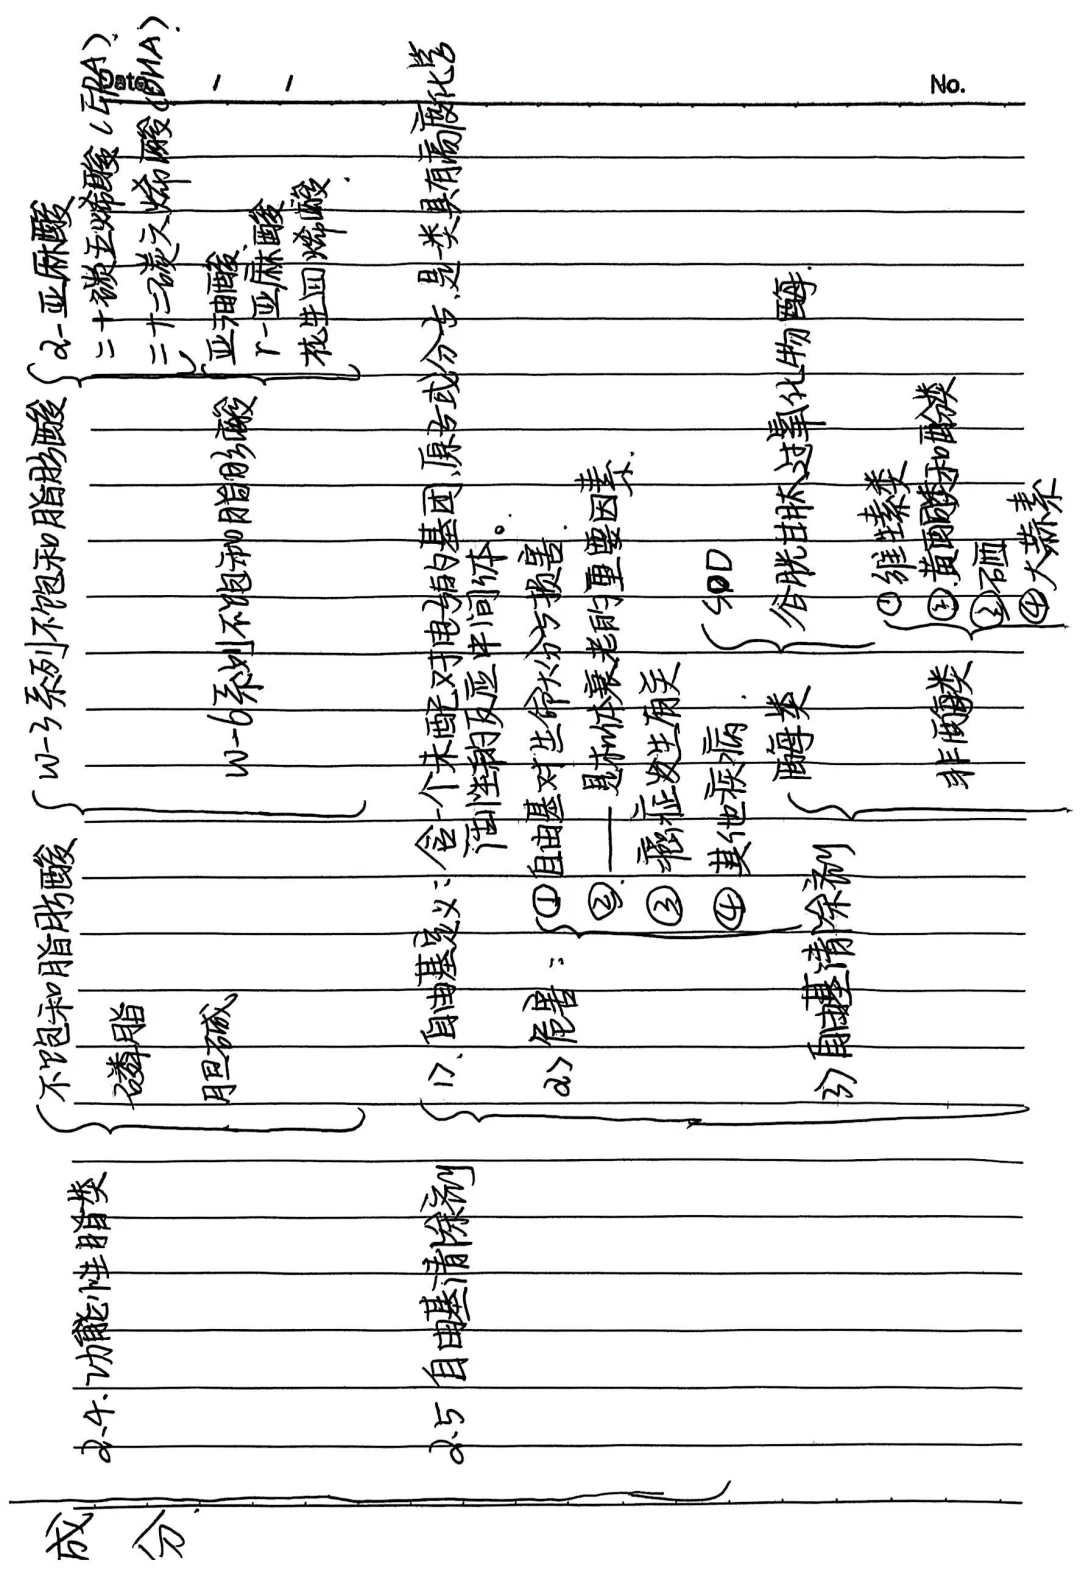 Date / /
No.
成分
2.4. 功能性脂类
不饱和脂肪酸
w-3系列不饱和脂肪酸
α-亚麻酸
二十碳五烯酸(EPA).
二十二碳六烯酸(DHA).
w-6系列不饱和脂肪酸
亚油酸.
r-亚麻酸
花生四烯酸.
磷脂
胆碱
2.5 自由基清除剂
1>. 自由基定义: 含一个未配对电子的基团、原子或分子,是一类具有高度化学
活性的反应中间体。
2> 危害:
① 自由基对生命大分子损害.
② — 是机体衰老的重要因素.
③ 癌症发生有关
④ 其他疾病.
3) 自由基清除剂
酶类
SOD
谷胱甘肽过氧化物酶.
非酶类
① 维生素类
② 黄酮类和酚类
③ 硒
④ 大蒜素